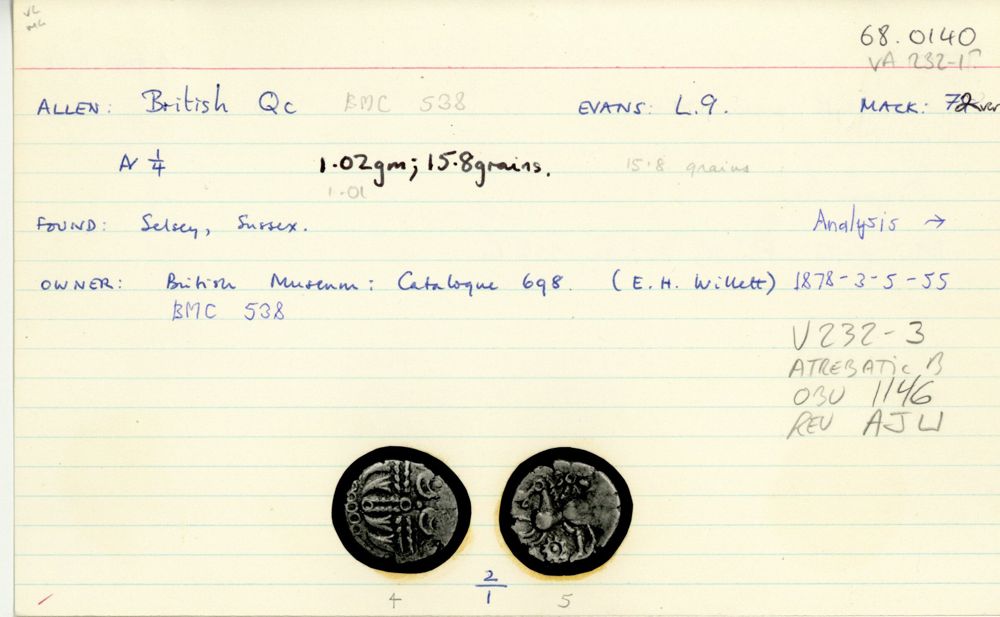 VC
MG
68.0140
VA 232-1
ALLEN: British Qc BMC 538 EVANS: L.9. MACK: 72 var
¼ 1.02gm; 15.8grains. 15.8 grains
1.01
FOUND: Selsey, Sussex. Analysis →
OWNER: British Museum: Catalogue 698. (E.H. Willett) 1878-3-5-55
BMC 538
V232-3
ATREBATIC B
OBV 1146
REV AJW
2
1
4 5